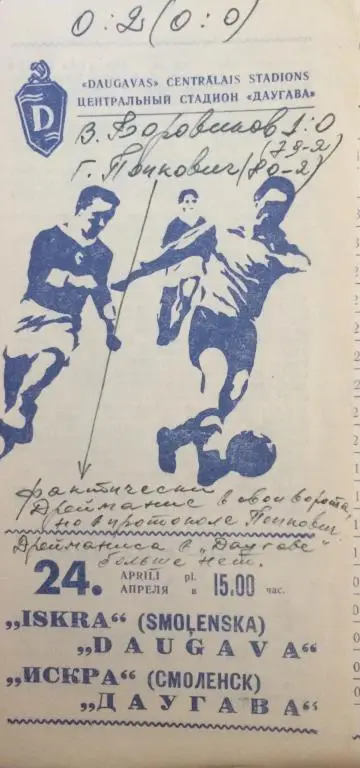 0:2 (0:0)
D
«DAUGAVAS» CENTRĀLAIS STADIONS
ЦЕНТРАЛЬНЫЙ СТАДИОН «ДАУГАВА»
В. Боровиков 1:0
(79-я)
Г. Попкович (80-я)
фактически
Дрейманис в свои ворота,
но в протоколе Попкович.
Дрейманиса в „Даугаве"
больше нет.
24. APRĪLĪ pl. 15.00
АПРЕЛЯ в час.
„ISKRA" (SMOĻENSKA)
„DAUGAVA"
„ИСКРА" (СМОЛЕНСК)
„ДАУГАВА"